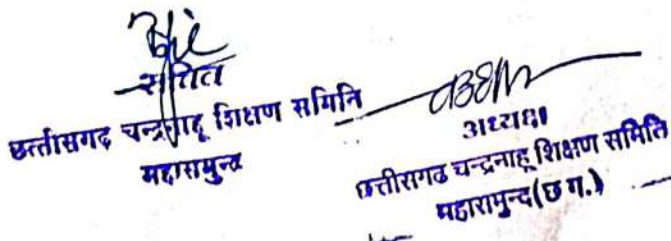 सचिव
छत्तीसगढ़ चन्द्रनाहू शिक्षण समिति
महासमुन्द
अध्यक्ष
छत्तीसगढ चन्द्रनाहू शिक्षण समिति
महासमुन्द (छ ग.)